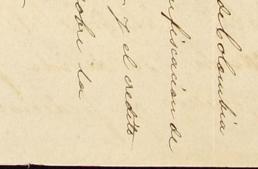 de Colombia
nfiscacion de
y el credito
sobre la